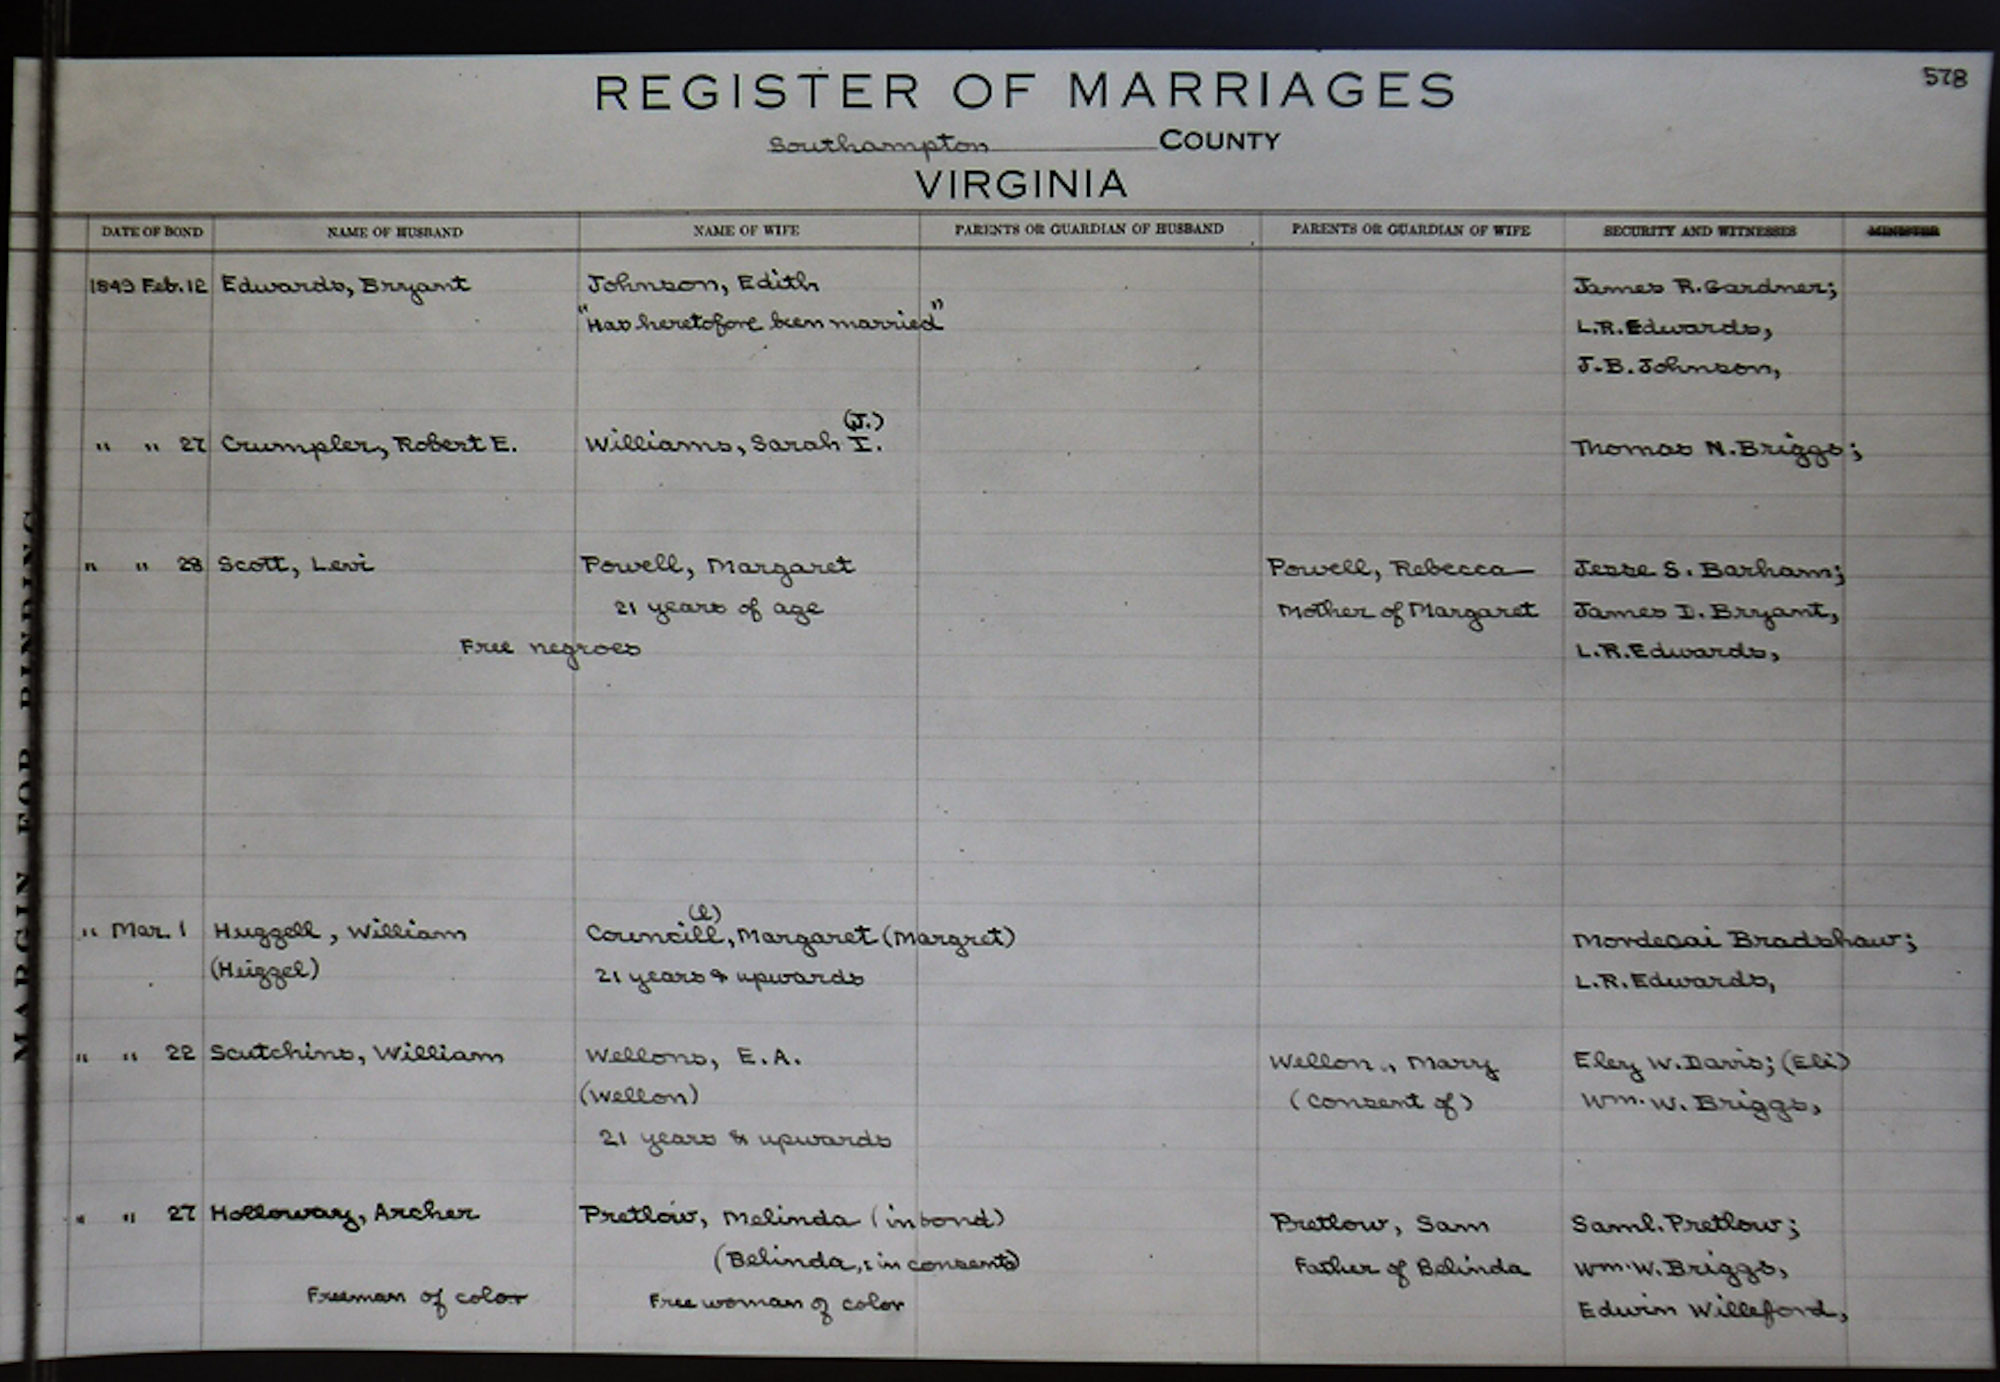 578
REGISTER OF MARRIAGES
Southampton COUNTY
VIRGINIA
DATE OF BOND NAME OF HUSBAND NAME OF WIFE PARENTS OR GUARDIAN OF HUSBAND PARENTS OR GUARDIAN OF WIFE SECURITY AND WITNESSES MINISTER
1849 Feb. 12 Edwards, Bryant Johnson, Edith James R. Gardner;
"Has heretofore been married" L.R. Edwards,
J.B. Johnson,
(J.)
" " 27 Crumpler, Robert E. Williams, Sarah I. Thomas N. Briggs;
" " 28 Scott, Levi Powell, Margaret Powell, Rebecca— Jesse S. Barham;
21 years of age Mother of Margaret James D. Bryant,
Free negroes L.R. Edwards,
(l)
" Mar. 1 Huggell, William Councill, Margaret (Margret) Mordecai Bradshaw;
(Huggel) 21 years & upwards L.R. Edwards,
" " 22 Scutchins, William Wellons, E.A. Wellon, Mary Eley W. Davis; (Eli)
(Wellon) (consent of) Wm. W. Briggs,
21 years & upwards
" " 27 Holloway, Archer Pretlow, Melinda (in bond) Pretlow, Sam Saml. Pretlow;
(Belinda, in consents) Father of Belinda Wm. W. Briggs,
Freeman of color Free woman of color Edwin Willeford,
MARGIN FOR BINDING